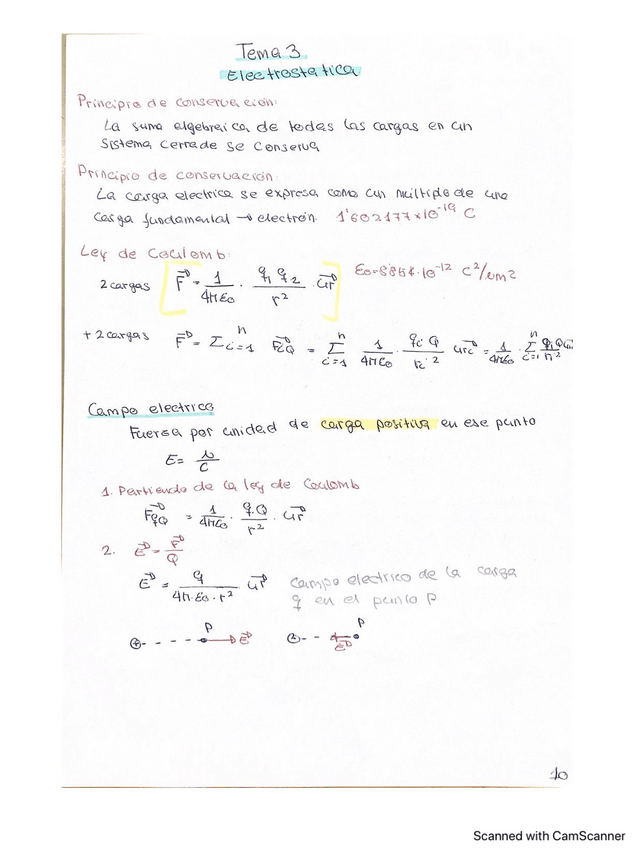 Tema 3
Electrostatica
Principio de conservación:
La suma algebraica de todas las cargas en un
sistema cerrado se conserva
Principio de conservación:
La carga electrica se expresa como un múltiplo de una
carga fundamental → electrón. 1'602177 x 10⁻¹⁹ C
Ley de Coulomb:
2 cargas F⃗ = 1/4πε₀ · q₁ q₂/r² · ur⃗ ε₀=8'854·10⁻¹² C²/Nm²
+2 cargas F⃗ = Σᵢ₌₁ⁿ F⃗iQ = Σᵢ₌₁ⁿ 1/4πε₀ · qi Q/ri² uri⃗ = 1/4πε₀ · Σᵢ₌₁ⁿ
Campo electrico
Fuerza por unidad de carga positiva en ese punto
E = N/C
1. Partiendo de la ley de Coulomb
F⃗qQ = 1/4πε₀ · q·Q/r² · ur⃗
2. E⃗ = F⃗/Q
E⃗ = q/4π·ε₀·r² ur⃗ Campo electrico de la carga
q en el punto P
P P
+ E⃗ E⃗
10
Scanned with CamScanner